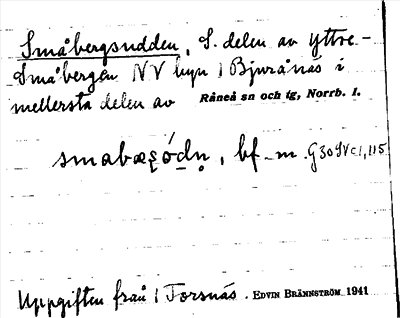 Småbergsudden, S. delen av Yttre-
Småbergen NV byn 1 Bjurånäs i
mellersta delen av Råneå sn och tg, Norrb. l.
smabæʂódn̥, bf. m. G30IVc1,115
Uppgiften från 1 Torsnäs. EDVIN BRÄNNSTRÖM 1941